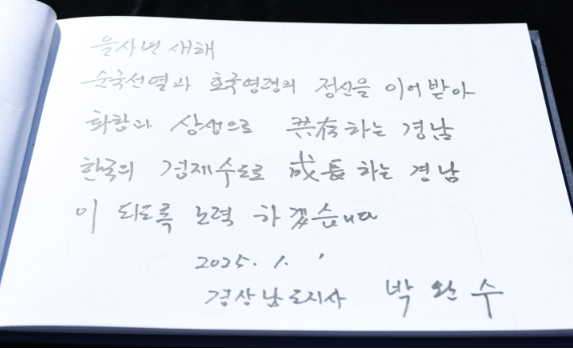 을사년 새해
순국선열과 호국영령의 정신을 이어받아
화합과 상생으로 共存하는 경남
한국의 경제수도로 成長하는 경남
이 되도록 노력 하겠습니다
2025. 1. 1
경상남도지사 박완수